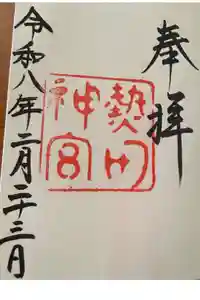 奉拝
熱田
神宮
令和八年二月二十三日